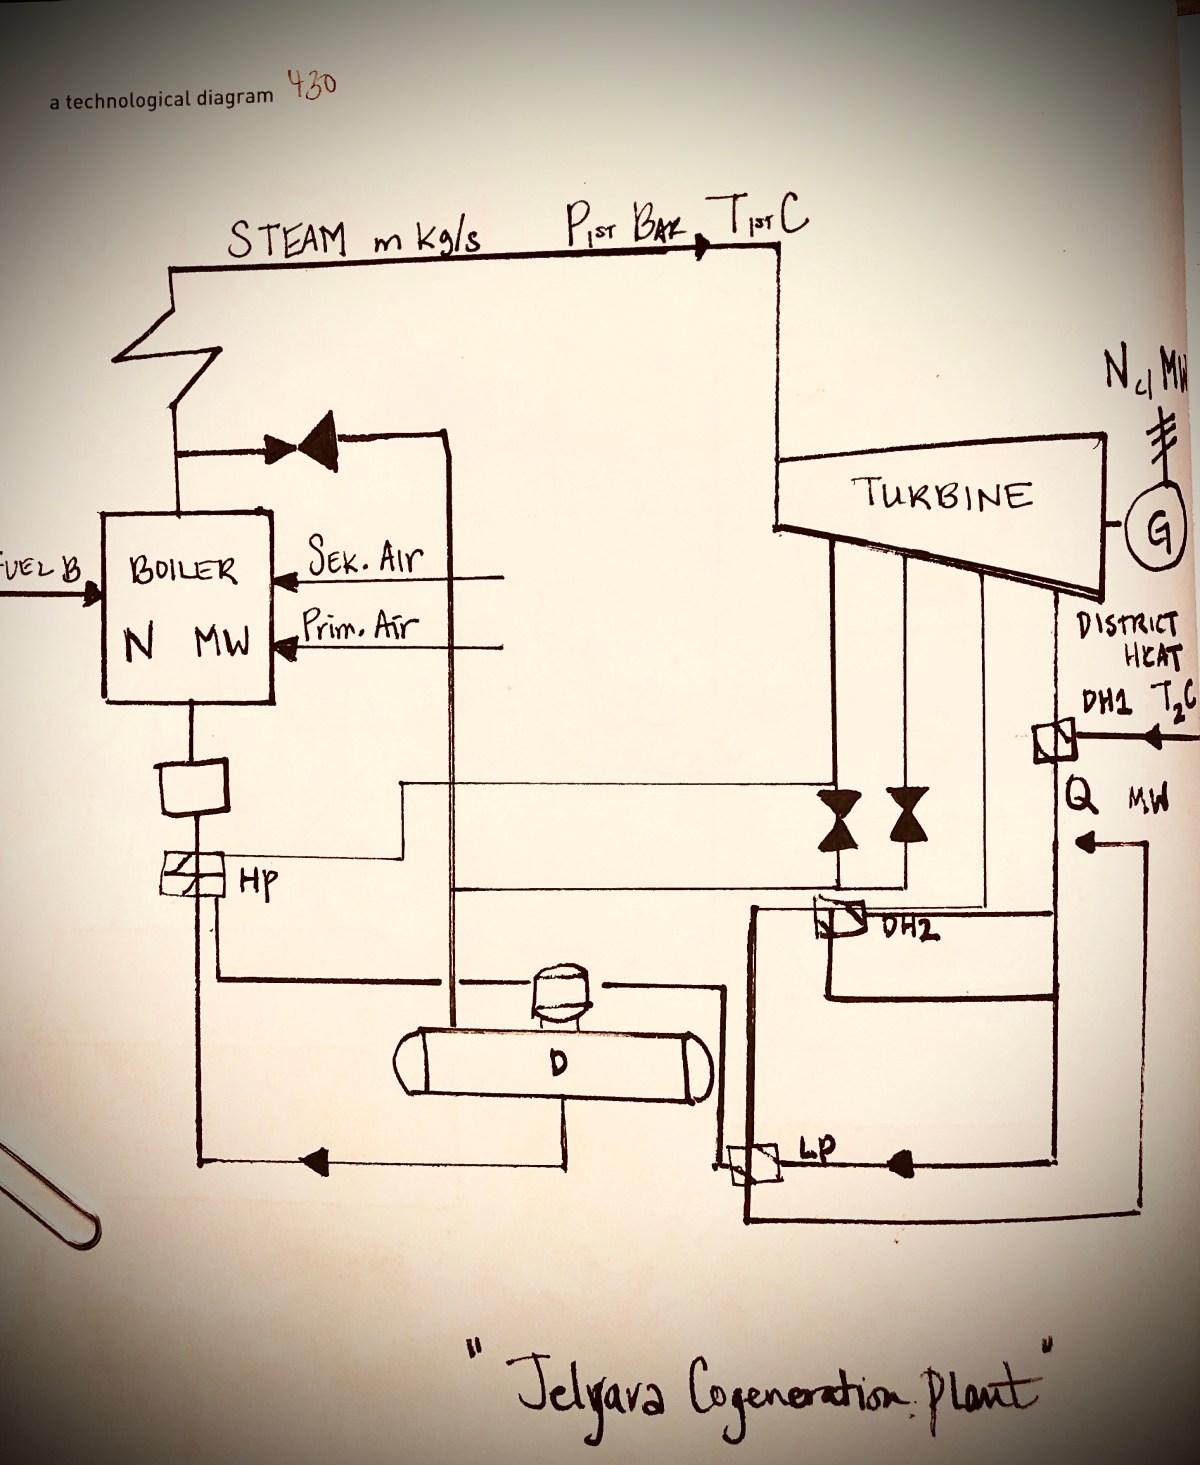 a technological diagram 430
STEAM m kg/s P1ST BAR T1ST C
Nel MW
TURBINE
G
FUEL B
BOILER
N MW
SEK. Air
Prim. Air
DISTRICT
HEAT
DH1 T2C
Q MW
HP
DH2
D
LP
"Jelgava Cogeneration Plant"